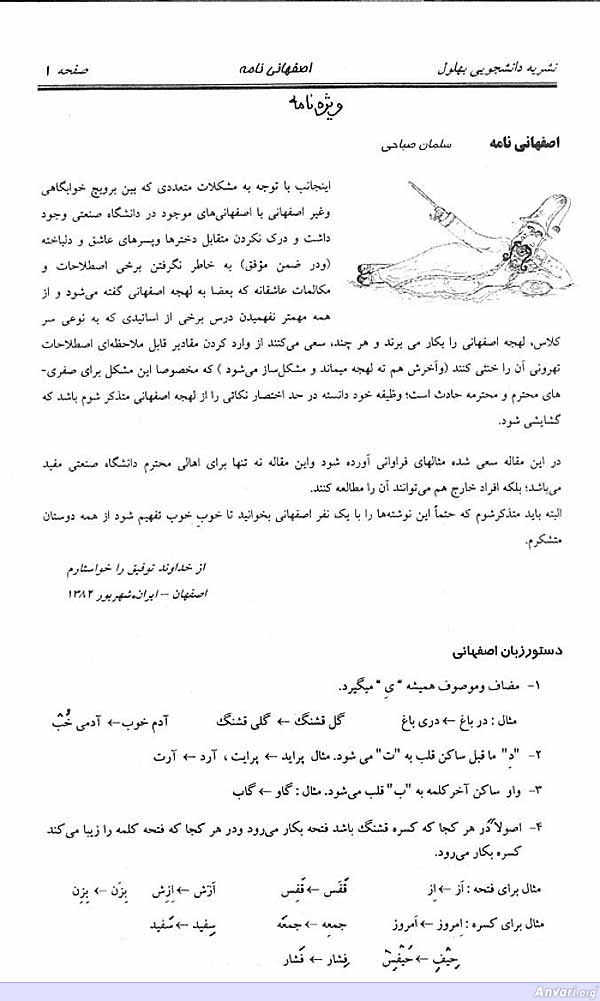 نشریه دانشجویی بهلول اصفهانی نامه صفحه ۱
ویژه نامه
اصفهانی نامه سلمان صباحی
اینجانب با توجه به مشکلات متعددی که بین بروبچ خوابگاهی
وغیر اصفهانی با اصفهانی‌های موجود در دانشگاه صنعتی وجود
داشت و درک نکردن متقابل دخترها وپسرهای عاشق و دلباخته
(ودر ضمن مؤفق) به خاطر نگرفتن برخی اصطلاحات و
مکالمات عاشقانه که بعضا به لهجه اصفهانی گفته می‌شود و از
همه مهمتر نفهمیدن درس برخی از اساتیدی که به نوعی سر
کلاس، لهجه اصفهانی را بکار می برند و هر چند، سعی می‌کنند از وارد کردن مقادیر قابل ملاحظه‌ای اصطلاحات
تهرونی آن را خنثی کنند (وآخرش هم ته لهجه میماند و مشکل‌ساز می‌شود ) که مخصوصا این مشکل برای صفری-
های محترم و محترمه حادث است؛ وظیفه خود دانسته در حد اختصار نکاتی را از لهجه اصفهانی متذکر شوم باشد که
گشایشی شود.
در این مقاله سعی شده مثالهای فراوانی آورده شود واین مقاله نه تنها برای اهالی محترم دانشگاه صنعتی مفید
می‌باشد؛ بلکه افراد خارج هم می‌توانند آن را مطالعه کنند.
البته باید متذکرشوم که حتماً این نوشته‌ها را با یک نفر اصفهانی بخوانید تا خوب خوب تفهیم شود از همه دوستان
متشکرم.
از خداوند توفیق را خواستارم
اصفهان – ایران،شهریور ۱۳۸۲
دستورزبان اصفهانی
۱- مضاف وموصوف همیشه "یِ" میگیرد.
مثال : در باغ ← دری باغ گل قشنگ ← گلی قشنگ آدم خوب← آدمی خُبْ
۲- "دِ" ما قبل ساکن قلب به "ت" می شود. مثال پراید ← پرایت ، آرد ← آرت
۳- واو ساکن آخرکلمه به "ب" قلب می‌شود. مثال : گاو ← گاب
۴- اصولاً در هر کجا که کسره قشنگ باشد فتحه بکار می‌رود ودر هر کجا که فتحه کلمه را زیبا می‌کند
کسره بکار می‌رود.
مثال برای فتحه : اَز ← اِز قَفَس ← قَفِس اَرَش ← اِزِش بِزَن ← بِزِن
مثال برای کسره : اِمروز ← اَمروز جمعِه ← جمعَه سِفید ← سَفید
حِیْفِ ← حَیْفِسْ فِشار ← فَشار
Anvari.org